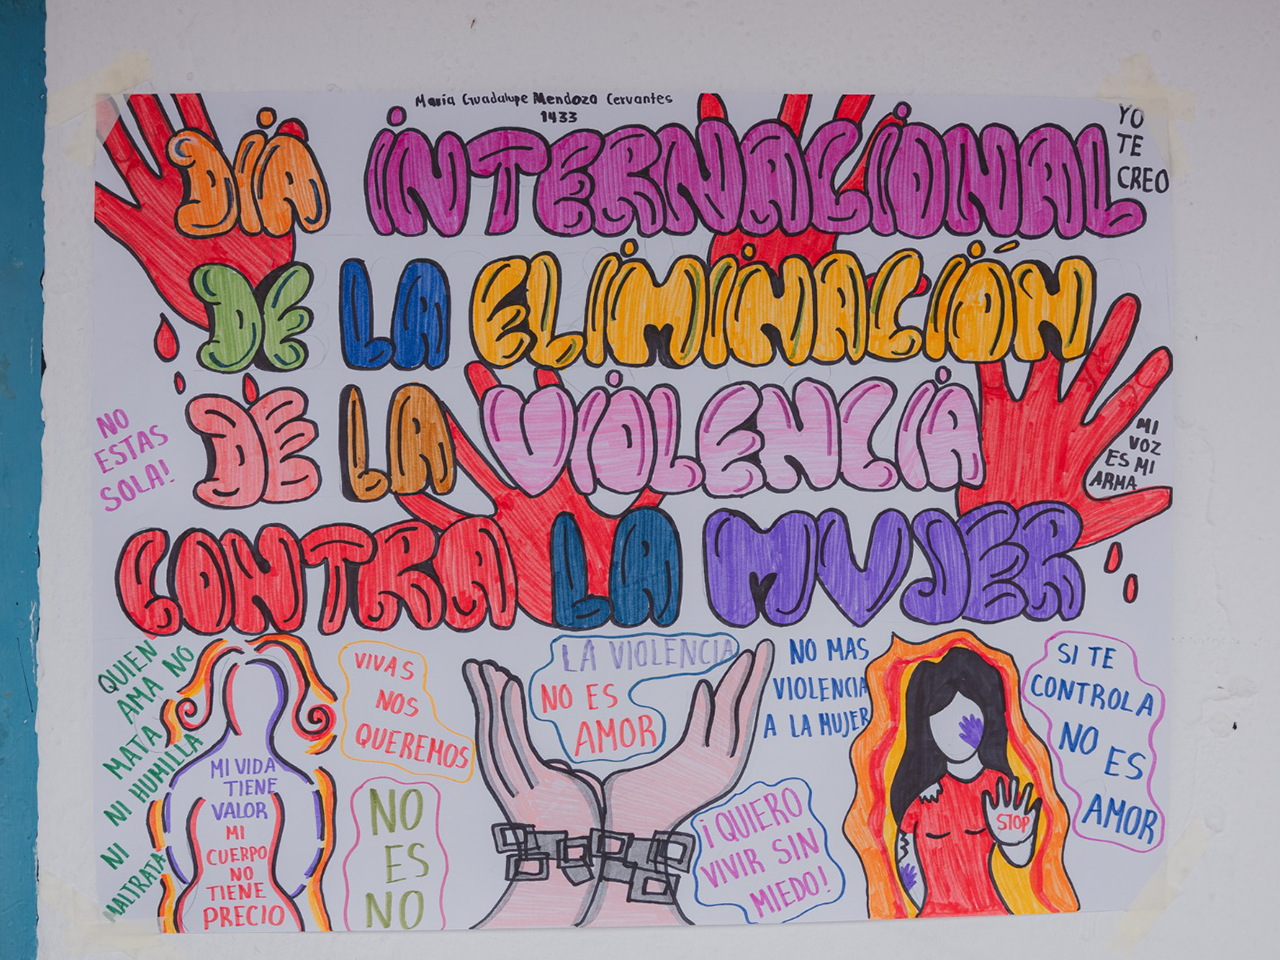 Maria Guadalupe Mendoza Cervantes
1433
YO
TE
CREO
DÍA INTERNACIONAL
DE LA ELIMINACIÓN
DE LA VIOLENCIA
CONTRA LA MUJER
NO
ESTAS
SOLA!
MI
VOZ
ES MI
ARMA
QUIEN
AMA NO
MATA
NI HUMILLA
NI
MALTRATA
MI VIDA
TIENE
VALOR
MI
CUERPO
NO
TIENE
PRECIO
VIVAS
NOS
QUEREMOS
NO
ES
NO
LA VIOLENCIA
NO ES
AMOR
NO MAS
VIOLENCIA
A LA MUJER
¡QUIERO
VIVIR SIN
MIEDO!
STOP
SI TE
CONTROLA
NO ES
AMOR